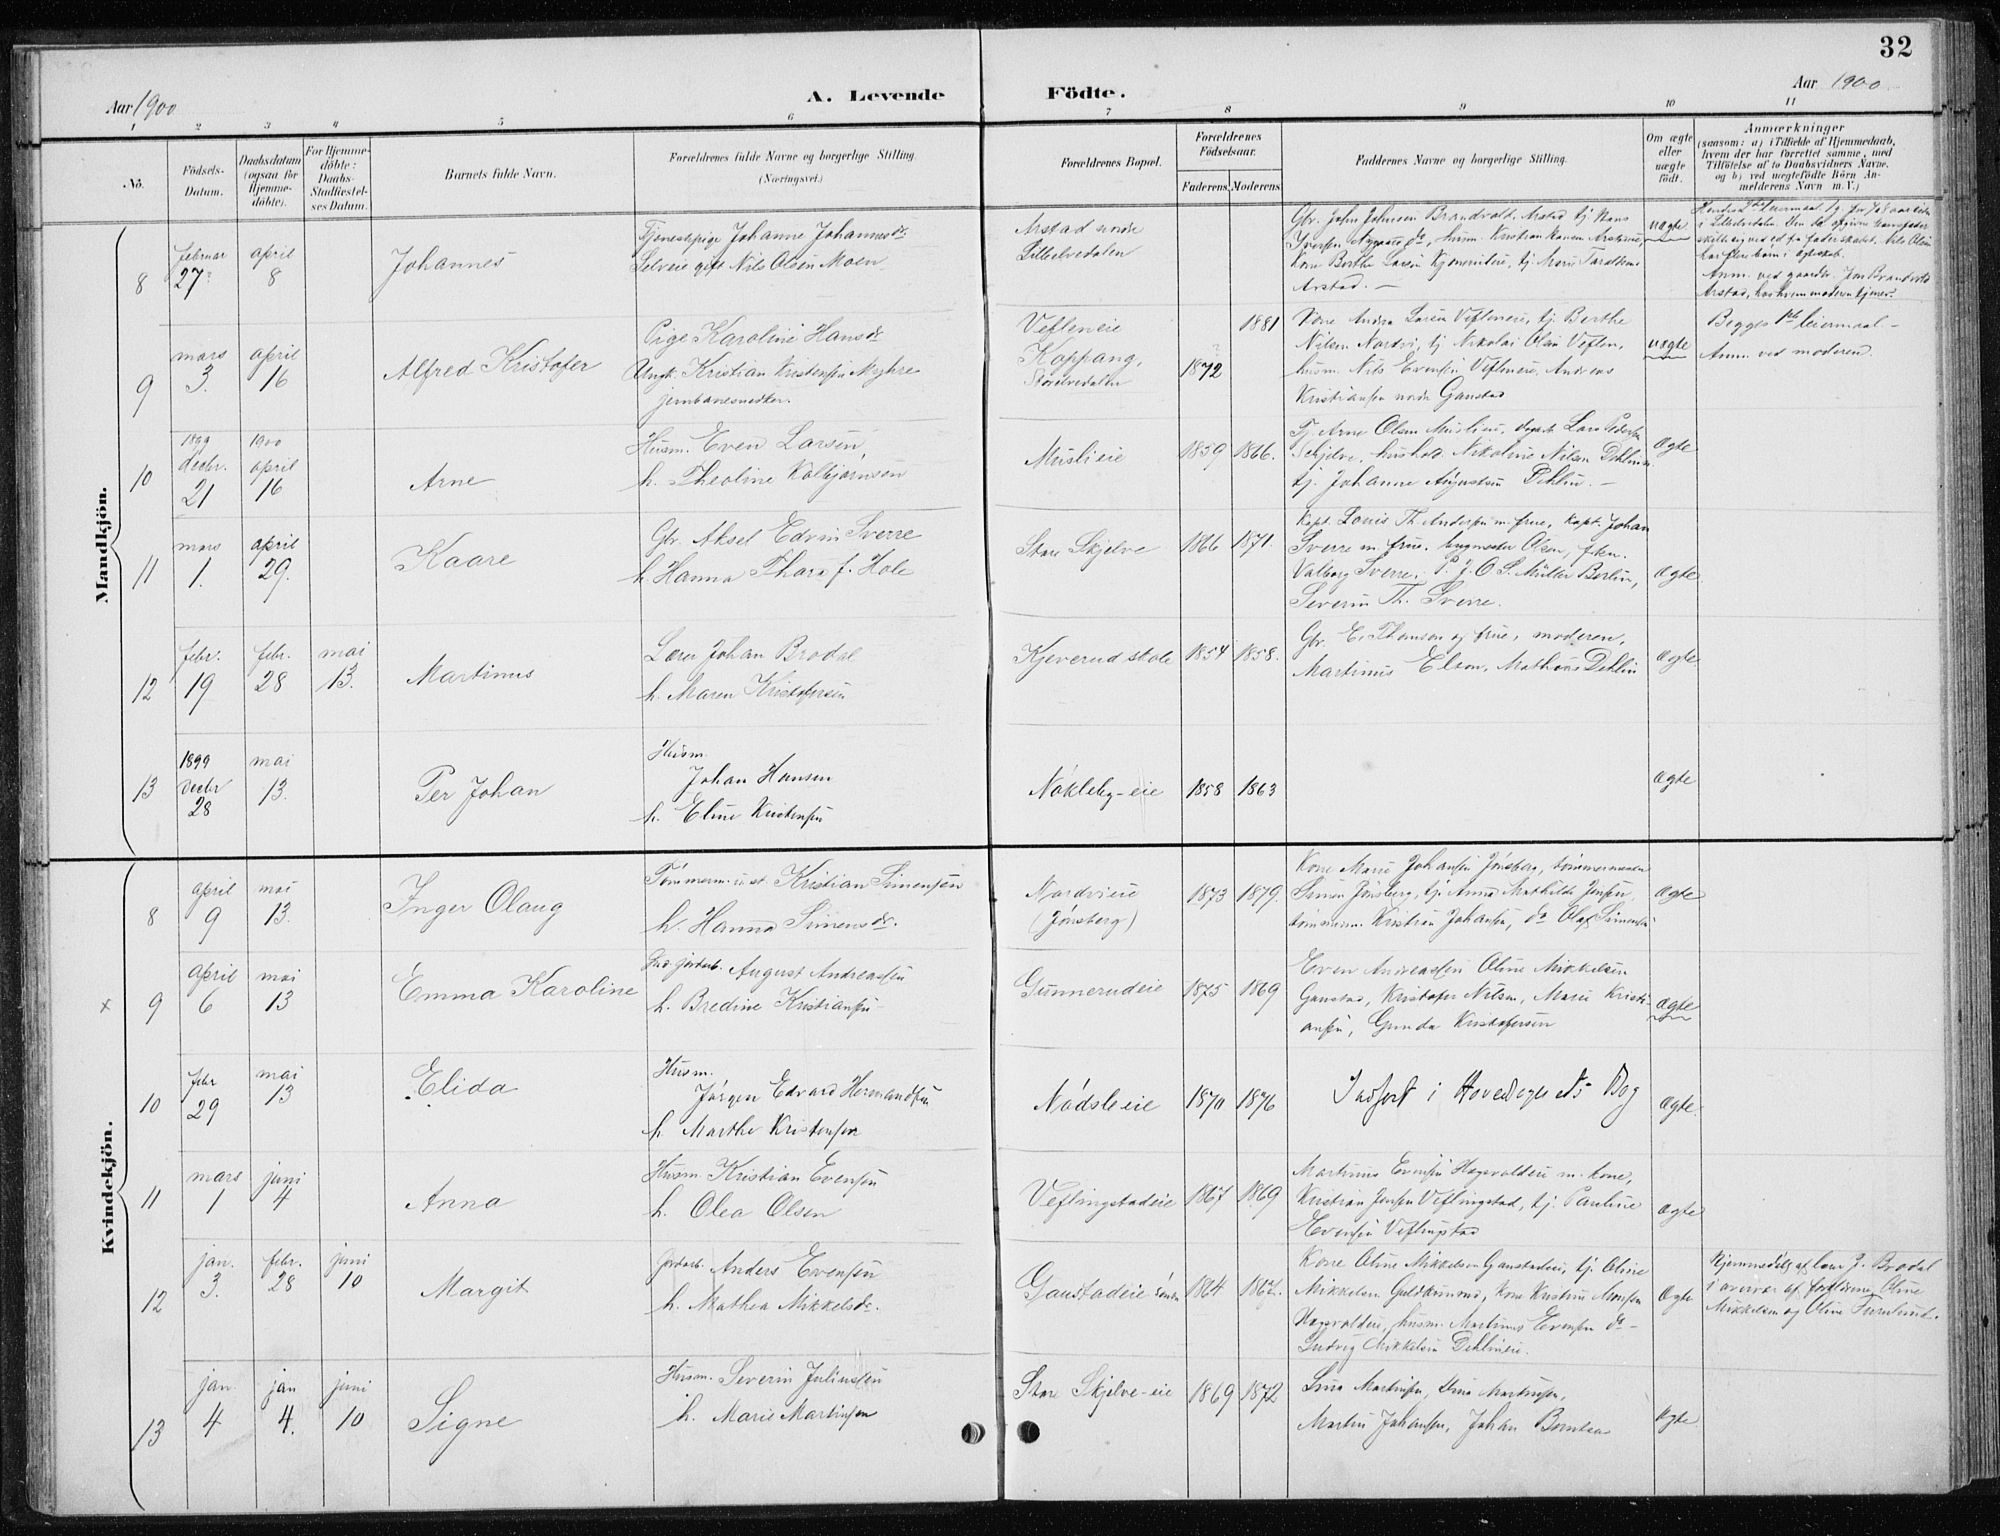 32
Aar 1900
A. Levende
Födte.
Aar 1900
1 2 3 4 5 6 7 8 9 10 11
No.
Födsels-
Datum.
Daabsdatum
(ogsaa for
Hjemme-
döbte).
For Hjemme-
döbte:
Daabs-
Stadfæstel-
ses Datum.
Barnets fulde Navn.
Forældrenes fulde Navne og borgerlige Stilling
(Næringsvei.)
Forældrenes Bopæl.
Forældrenes
Födselsaar.
Faderens.
Moderens.
Faddernes Navne og borgerlige Stilling.
Om ægte
eller
uægte
födt.
Anmærkninger
(saasom: a) i Tilfælde af Hjemmedaab,
hvem der har forrettet samme, med
Tilföielse af to Daabsvidners Navne.
og b) ved uægtefödte Börn An-
melderens Navn m. V.)
Mandkjön.
8
februar
27
april
8
Johannes
Tjenestepige Johanne Johannesdr.
Selveier gift Nils Olsen Moen
Arstad nordre
Lilleelvedalen
Gbr. John Johnsen Brandvold, Arstad, tj. Hans
Iversen Nygaard do, husm. Kristian Hansen Arstadeie,
Kone Berthe Larsen
Arstad. —
uægte
Anm. ved gaardbr. Jon Brandvold
Arstad, hos hvem moderen tjener.
9
mars
3.
april
16
Alfred Kristofer
Pige Karoline Hansdr
Ungk. Kristian Kristensen Myhre
jernbanesnedker.
Vefleneie
Koppang,
Storelvedalen
1872
1881
Kone Andrea Larsen Vefleneie, tj. Berthe
Nilsen Nordvi, tj. Nikolai Olsen Veflen,
husm. Nils Evensen Vefleneie, Andreas
Kristiansen nordre Gaustad
uægte
Begges 1ste leiermaal —
Anm. ved moderen.
10
1899
decbr.
21
1900
april
16
Arne
Husm. Even Larsen,
h. Theoline Kolbjørnsen
Muslieie
1859
1866.
Tj. Arne Olsen Muslieie, Lars Pedersen
Skjelve, hushold. Nikoline Nilsen Dehlin
tj. Johanne Augustsen Dehlin. —
ægte
11
mars
1.
april
29.
Kaare
Gbr. Aksel Edvin Sverre
h. Hanna Thora f. Hole
Store Skjelve
1866
1871.
Kapt. Louis Th. Andersen m. frue, Kapt. Johan
Sverre m. frue. Olsen, frkn.
Valborg Sverre, P. J. O. S. Müller Berlin,
Severin Th. Sverre.
ægte
12
febr.
19
febr.
28
mai
13.
Martinus
Lærer Johan Brodal
h. Maren Kristofersen
Kjeverud skole
1854
1858.
Gbr. E. Thomson og frue, moderen,
Martinus Elson, Mathias Dehlin
ægte
13
1899
decbr
28
mai
13.
Per Johan
Husm.
Johan Hansen
h. Eline Kristensen
Nökleby-eie
1858
1863
ægte
Kvindekjön.
8
april
9
mai
13.
Inger Olaug
Tømmerm. Kristian Simensen
h. Hanna Simensdr.
Nordvieie
(Jønsberg)
1873
1879.
Kone Marie Johansen Jønsberg, tømmermand
Simen Jønsberg, tj. Anna Mathilde Jensen,
tømmerm. Kristian Johansen, do Olaf Simensen
ægte
x
9
april
6
mai
13
Emma Karoline
jordarb. August Andreassen
h. Bredine Kristiansen
Gunnerudeie
1875
1869
Even Andreassen Oline Mikkelsen
Gaustad, Kristofer Nilsen, Marie Kristi-
ansen, Gunda Kristofersen
ægte
10
febr
29
mai
13
Elida
Husm.
Jørgen Edvard Hermandsen
h. Marthe Kristensen
Nödsleeie
1870
1876
Indført i Hovedsognets Bog
ægte.
11
mars
1
juni
4
Anna
Husm. Kristian Evensen
h. Olea Olsen
Veflingstadeie
1867
1869
Martinus Evensen Hagevoldeie m. kone,
Kristian Jensen Veflingstad, tj. Pauline
Evensen Veflingstad
ægte
12
jan.
3.
febr.
28
juni
10
Margit
Jordarb. Anders Evensen
h. Mathea Mikkelsdr.
Gaustadeie søndre
1864
1867.
Kone Oline Mikkelsen Gaustadeie, tj. Oline
Mikkelsen Guldbrunnd, Kone Kristine Monsen
Hagevoldeie, husm. Martinus Evensen do —
Ludvig Mikkelsen Dehlineie.
ægte
Hjemmedøbt af lærer J. Brodal
i overvær af forældrene Oline
Mikkelsen og Oline Furulund.
13
jan.
4
jan
4.
juni
10
Signe
Husm. Severin Juliussen
h. Marie Martinsen
Store Skjelve-eie
1869
1872
Lina Martinsen, Dina Martinsen,
Martin Johansen, Johan Berntsen
ægte